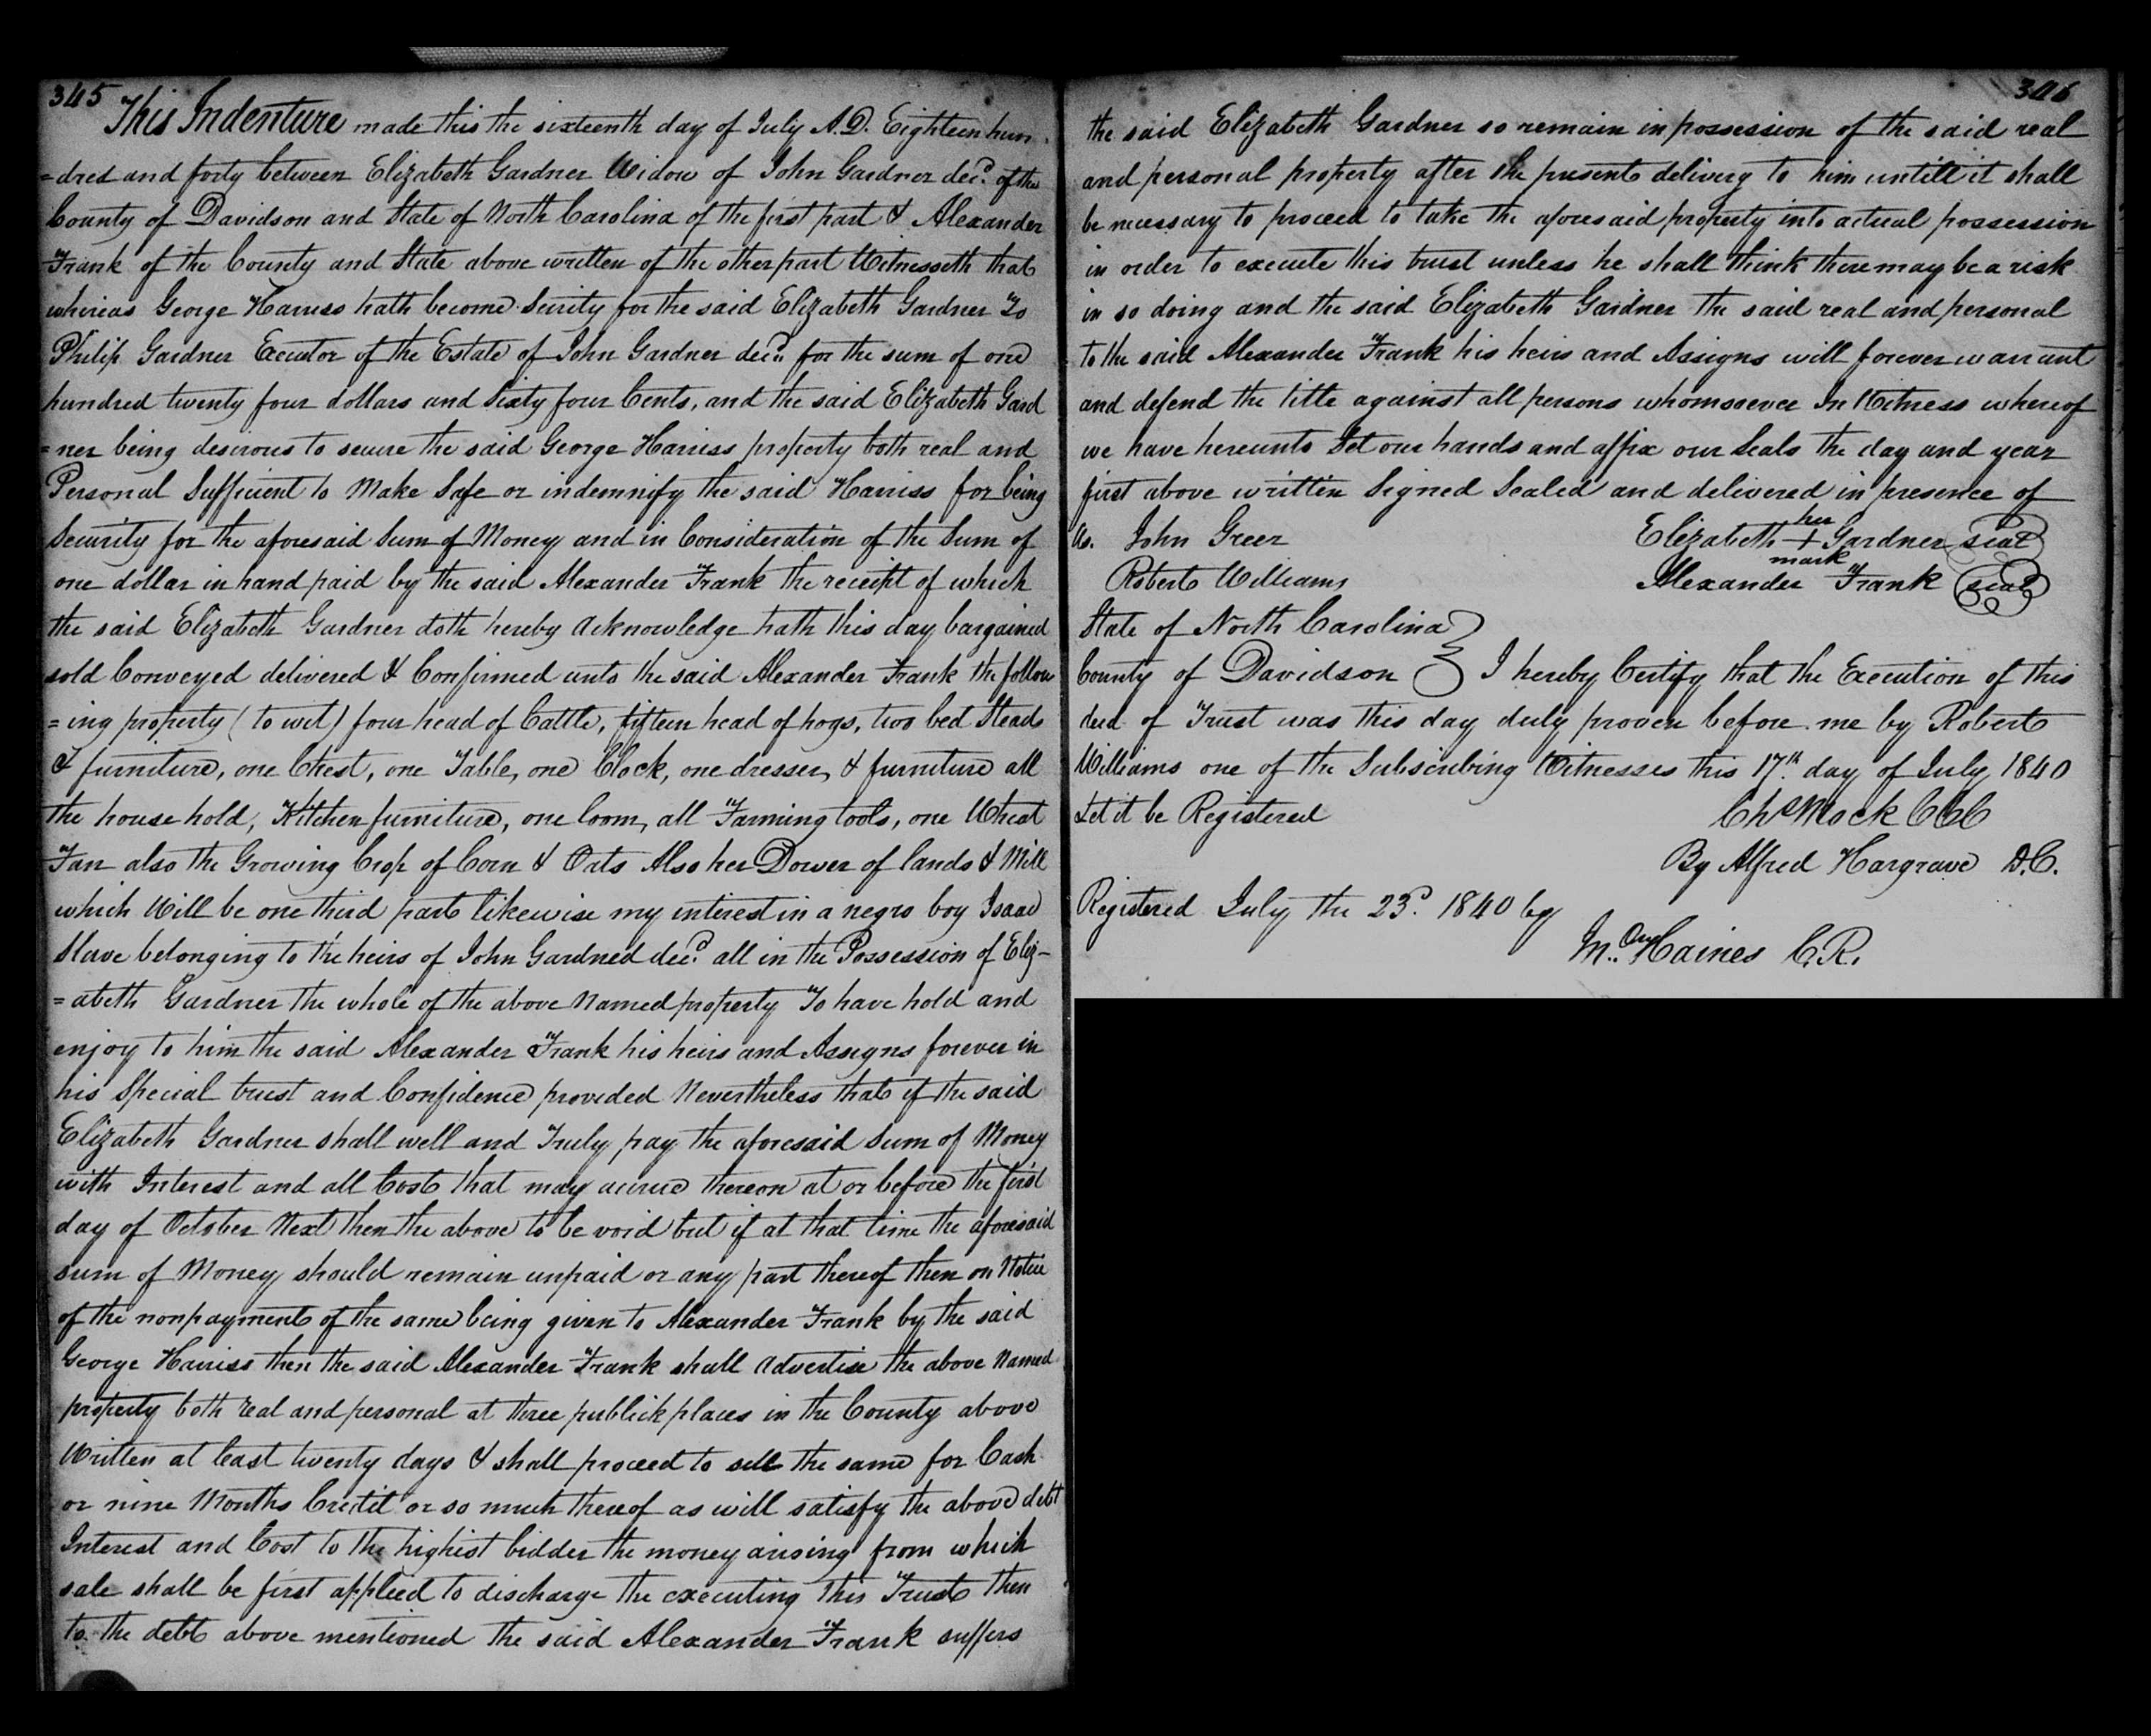 345
This Indenture made this the sixteenth day of July A.D. Eighteen hun
=dred and forty between Elizabeth Gardner Widow of John Gardner decd. of the
County of Davidson and State of North Carolina of the first part & Alexander
Frank of the County and State above written of the other part Witnesseth that
whereas George Harriss hath become Security for the said Elizabeth Gardner To
Philip Gardner Executor of the Estate of John Gardner decd. for the sum of one
hundred twenty four dollars and Sixty four Cents, and the said Elizabeth Gard
=ner being desirous to secure the said George Harriss property both real and
Personal Sufficient to Make Safe or indemnify the said Harriss for being
Security for the aforesaid Sum of Money and in Consideration of the Sum of
one dollar in hand paid by the said Alexander Frank the receipt of which
the said Elizabeth Gardner doth hereby acknowledge hath this day bargained
sold Conveyed delivered & Confirmed unto the said Alexander Frank the follow
=ing property (to wit) four head of Cattle, fifteen head of hogs, two bed Steads
& furniture, one Chest, one Table, one Clock, one dresser, & furniture all
the house hold, Kitchen furniture, one loom, all Farming tools, one Wheat
Fan also the Growing Crop of Corn & Oats Also her Dower of lands & Mill
which Will be one third part likewise my interest in a negro boy Isaac
Slave belonging to the heirs of John Gardned decd. all in the Possession of Eliz-
=abeth Gardner the whole of the above Named property To have hold and
enjoy to him the said Alexander Frank his heirs and Assigns forever in
his Special trust and Confidence provided Nevertheless that if the said
Elizabeth Gardner shall well and Truly pay the aforesaid Sum of Money
with Interest and all Cost that may accrue thereon at or before the first
day of October Next then the above to be void but if at that time the aforesaid
sum of Money should remain unpaid or any part thereof then on Notice
of the nonpayment of the same being given to Alexander Frank by the said
George Harriss then the said Alexander Frank shall advertise the above Named
property both real and personal at three publick places in the County above
Written at least twenty days & shall proceed to sell the same for Cash
or nine Months Credit or so much thereof as will satisfy the above debt
Interest and Cost to the highest bidder the money arising from which
sale shall be first applied to discharge the executing this Trust then
to the debt above mentioned the said Alexander Frank suffers
346
the said Elizabeth Gardner so remain in possession of the said real
and personal property after the presents delivery to him untill it shall
be necessary to proceed to take the aforesaid property into actual possession
in order to execute this trust unless he shall think there may be a risk
in so doing and the said Elizabeth Gardner the said real and personal
to the said Alexander Frank his heirs and Assigns will forever warrant
and defend the title against all persons whomsoever In Witness whereof
we have hereunto Set our hands and affix our Seals the day and year
first above written Signed Sealed and delivered in presence of
John Greer Elizabeth her + mark Gardner seal
Robert Williams Alexander Frank seal
State of North Carolina
County of Davidson I hereby Certify that the Execution of this
deed of Trust was this day duly proven before me by Robert
Williams one of the Subscribing Witnesses this 17th. day of July 1840
Let it be Registered Chs Mock CCC
By Alfred Hargrave D.C.
Registered July the 23d. 1840 by
Haines C.R.